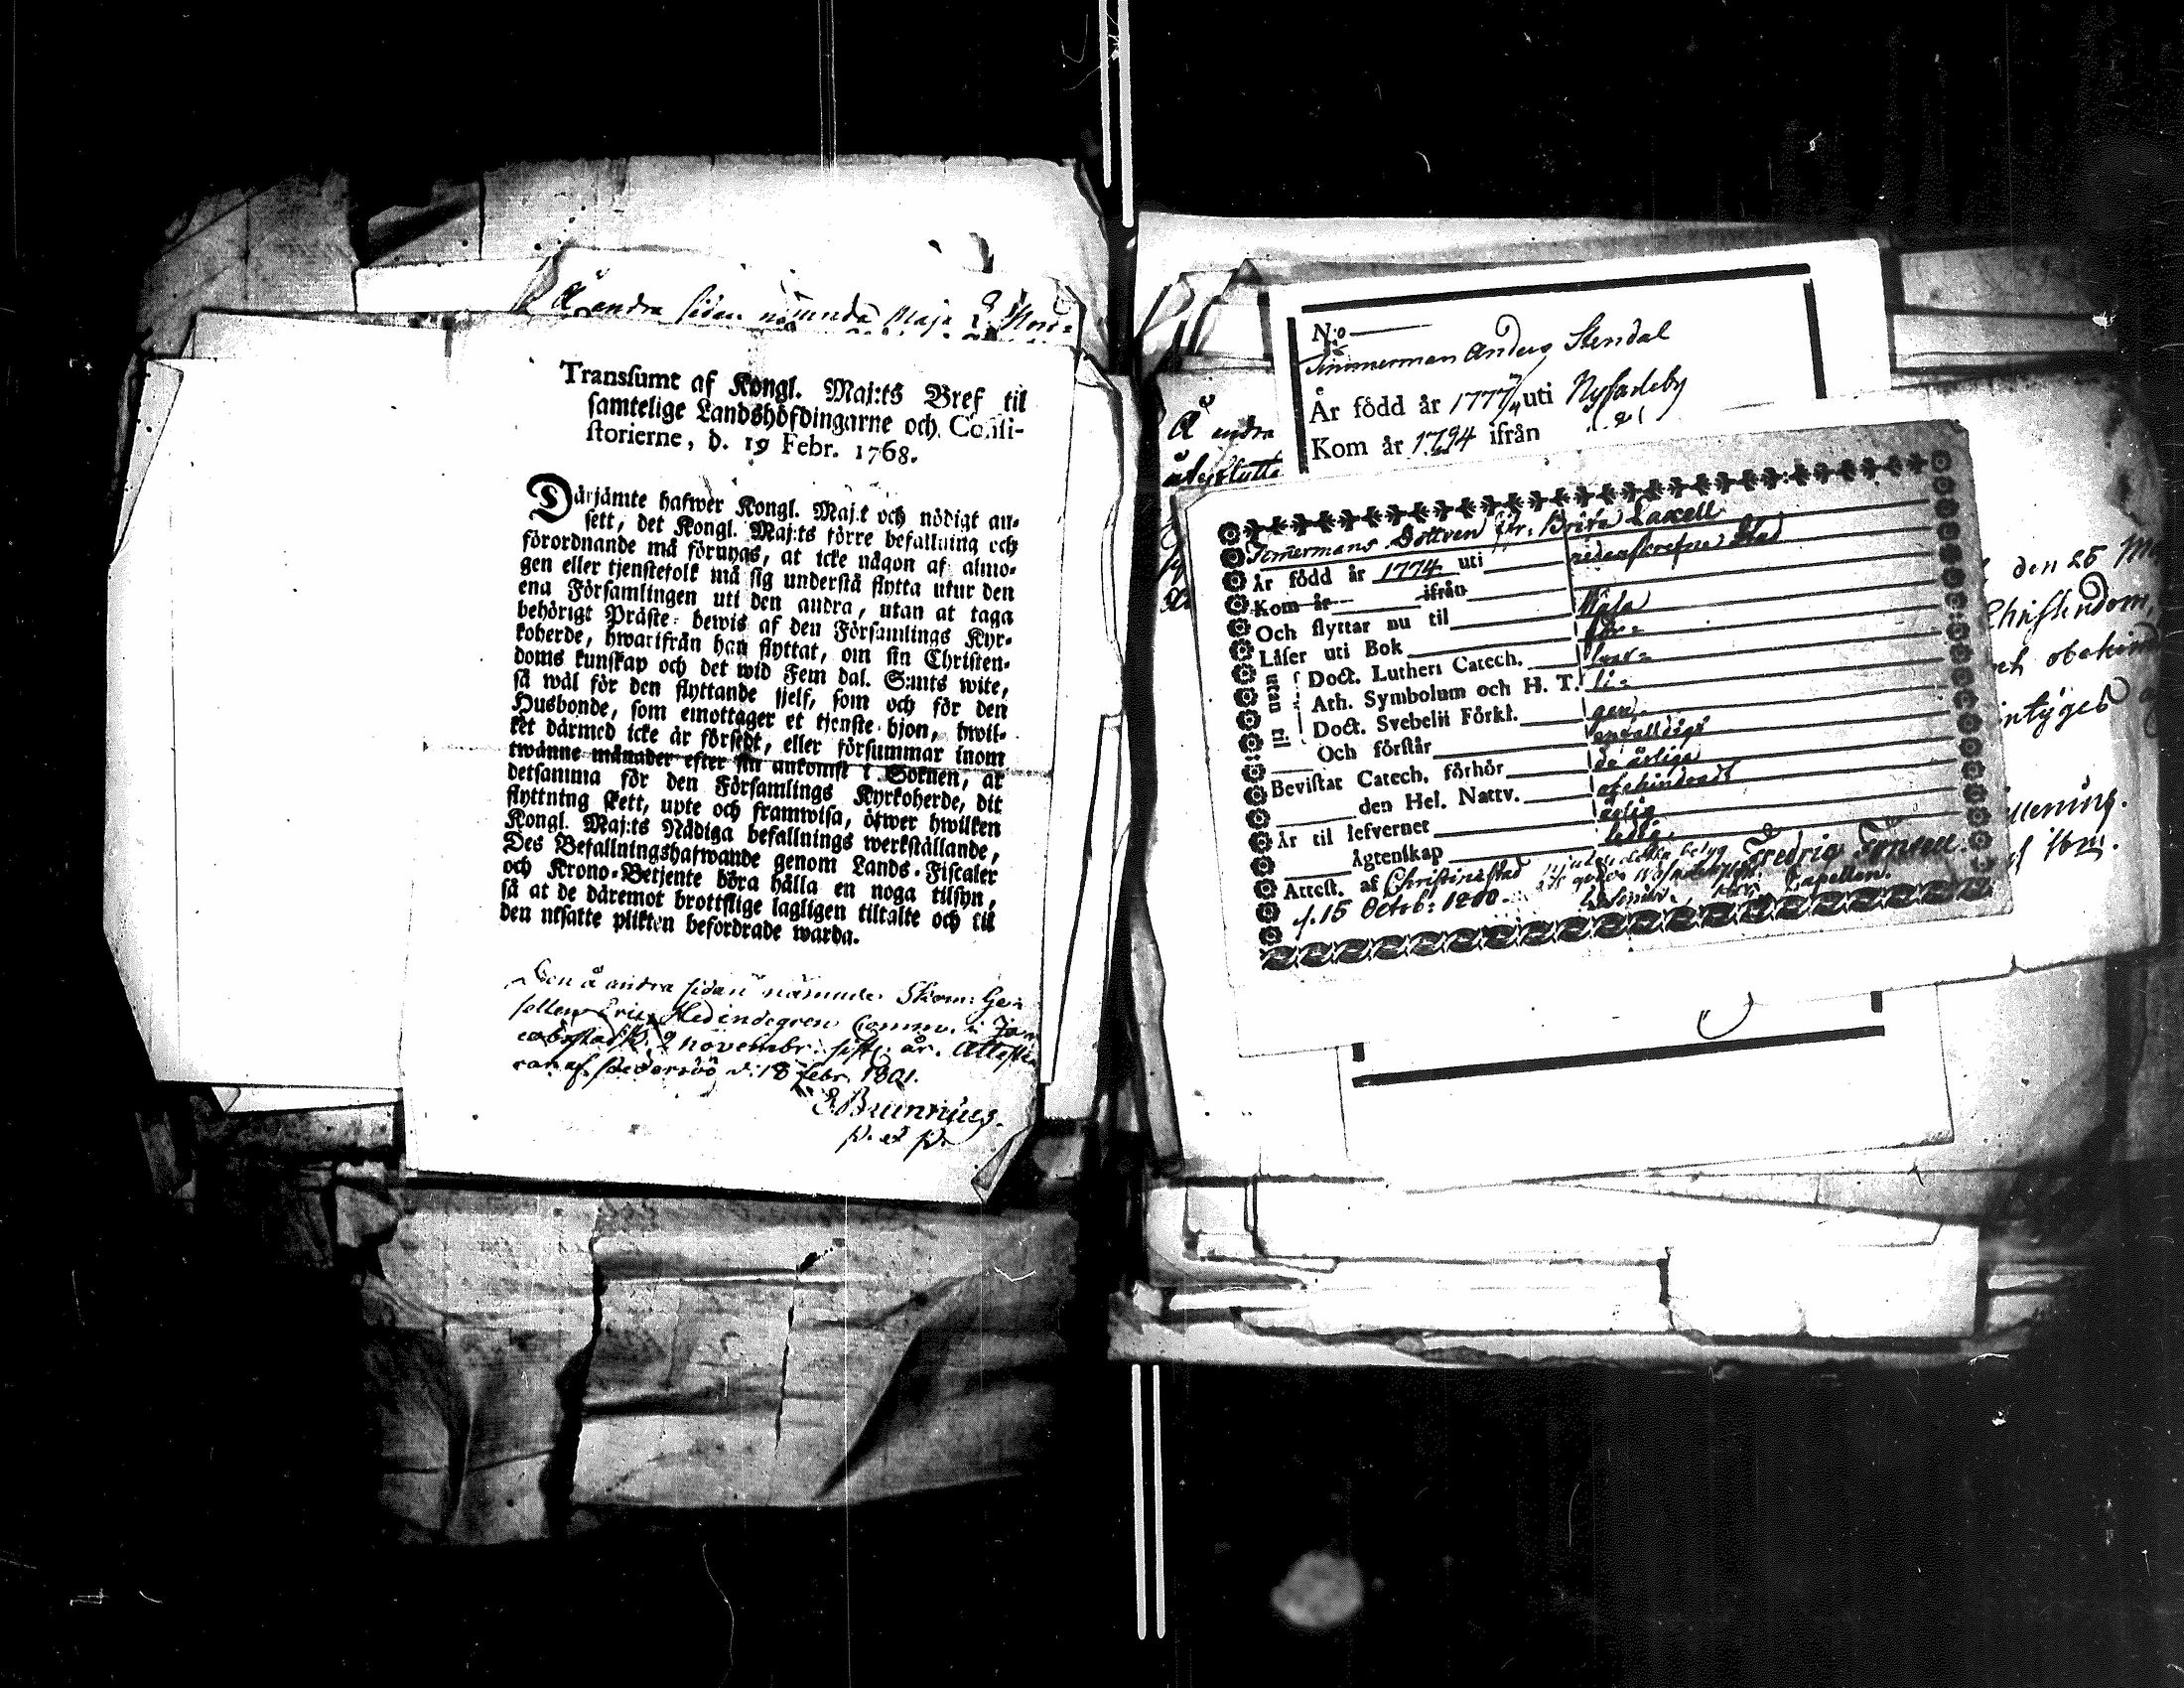 Å andra sidan nämnda Maja L. Nord-
Transsumt af Kongl. Maj:ts Bref til
samtelige Landshöfdingarne och Consi-
storierne, d. 19 Febr. 1768.
Därjämte hafwer Kongl. Maj:t och nödigt an-
sett, det Kongl. Maj:ts förre befallning och
förordnande må förnyas, at icke någon af almo-
gen eller tjenstefolk må sig understå flytta utur den
ena Församlingen uti den andra, utan at taga
behörigt Präste-bewis af den Församlings Kyr-
koherde, hwarifrån han flyttat, om sin Christen-
doms kunskap och det wid Fem dal. S:mts wite,
så wäl för den flyttande sjelf, som och för den
Husbonde, som emottager et tjenste-hjon, hwil-
ket därmed icke är försedt, eller försummar inom
twänne månader efter sin ankomst i Soknen, at
detsamma för den Församlings Kyrkoherde, dit
flyttning skett, upte och framwisa, öfwer hwilken
Kongl. Maj:ts Nådiga befallnings werkställande,
Des Befallningshafwande genom Lands-Fiscaler
och Krono-Betjente böra hålla en noga tilsyn,
så at de däremot brottslige lagligen tiltalte och til
den utsatte plikten befordrade warda.
Den å andra sidan nämnde Skom: Ge-
sellen Eric Hedendegren Comm. i Ja-
cobstad d. 9 novembr. sistl. år. Atteste-
ras af Pedersöö d. 18 Febr. 1801.
E Brunnius.
p. et p.
N:o
Timmerman Anders Stendal
År född år 1777 uti Nysadeby
Kom år 1794 ifrån
Å andra
Timermans Dottren Jfr. Brita Laxell
År född år 1774 uti nedanskrefne Stad
Kom år ifrån
Och flyttar nu til Wasa
Läser uti Bok för-
utan til Doct. Lutheri Catech. swar-
Ath. Symbolum och H. T. li-
Doct. Svebelii Förkl. gen
Och förstår enfalldigt
Bevistat Catech. förhör de årliga
den Hel. Nattv. obehindradt
Är til lefvernet ärlig
Ägtenskap ledig
Attest. af Christinestad Fredric Tonsen
d. 15 Octob: 1800. Capellan.
den 26
Christendom,
och obehind
intyges